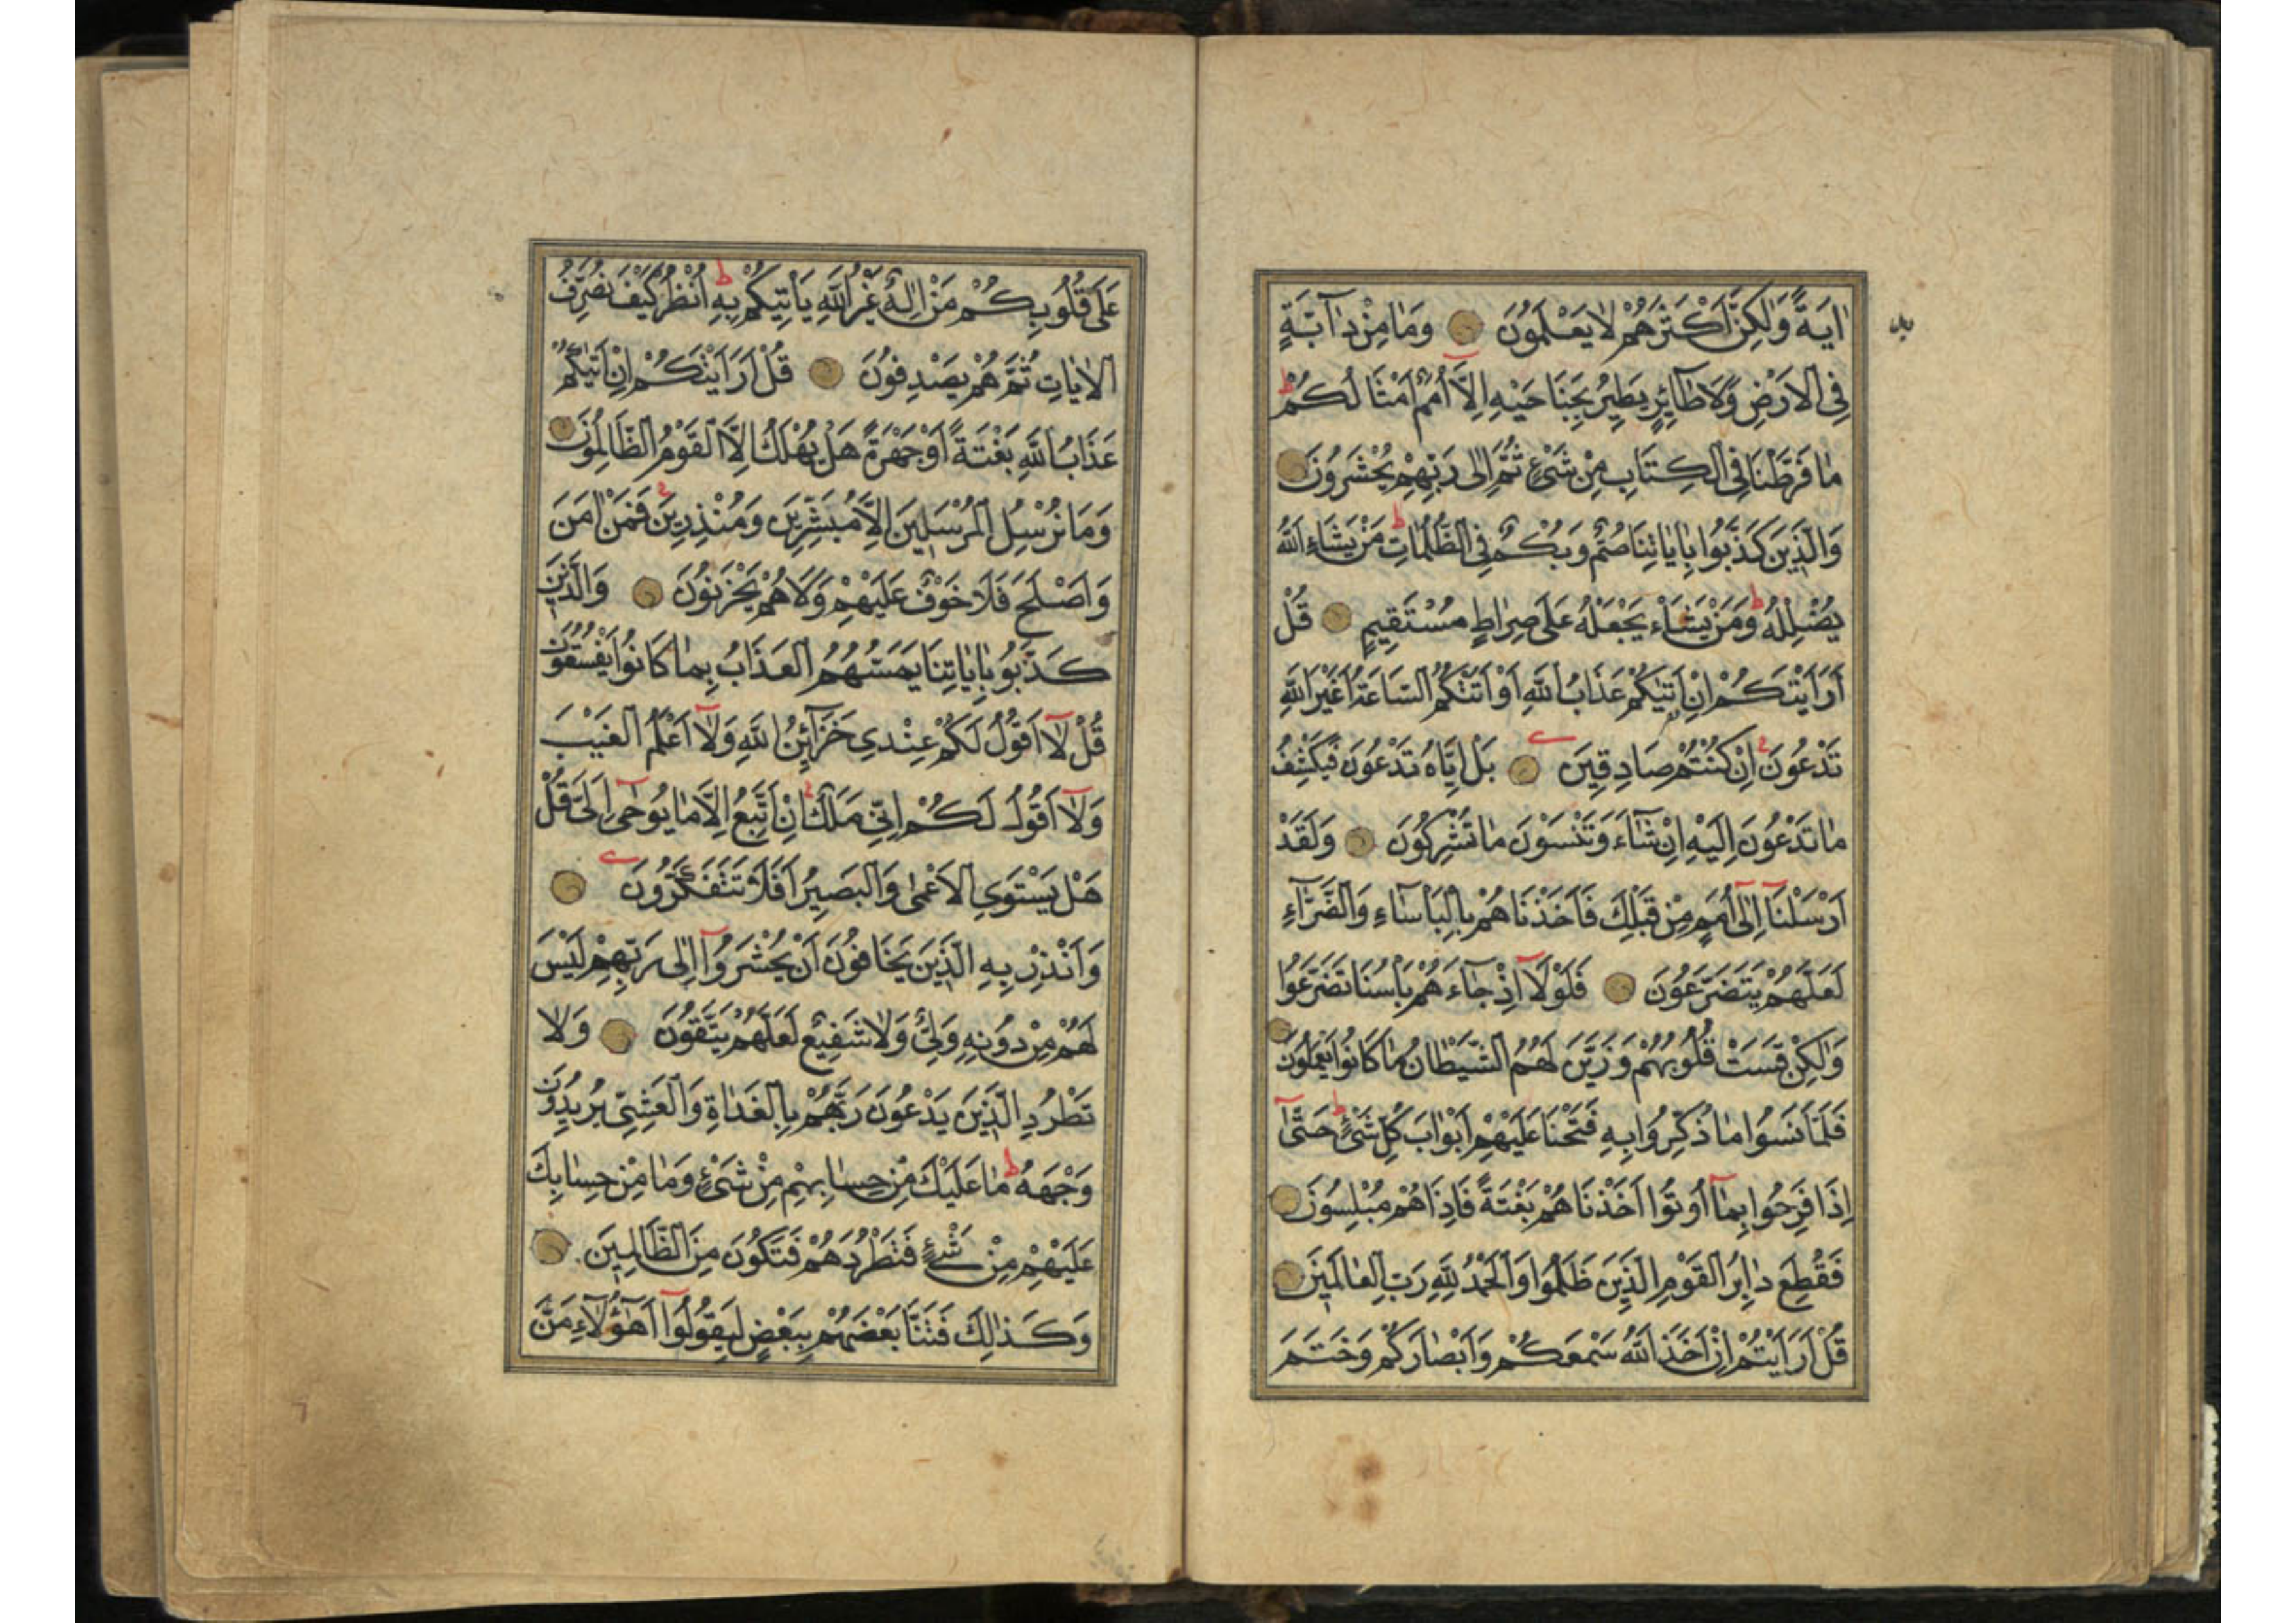 اٰيَةً وَلٰكِنَّ اَكْثَرَهُمْ لَا يَعْلَمُونَ وَمَا مِنْ دَآبَّةٍ
فِي الْاَرْضِ وَلَا طَآئِرٍ يَطِيرُ بِجَنَاحَيْهِ اِلَّآ اُمَمٌ اَمْثَالُكُمْ
مَا فَرَّطْنَا فِي الْكِتَابِ مِنْ شَيْءٍ ثُمَّ اِلٰى رَبِّهِمْ يُحْشَرُونَ
وَالَّذِينَ كَذَّبُوا بِاٰيَاتِنَا صُمٌّ وَبُكْمٌ فِي الظُّلُمَاتِ مَنْ يَشَاءِ اللّٰهُ
يُضْلِلْهُ وَمَنْ يَشَاْء يَجْعَلْهُ عَلٰى صِرَاطٍ مُسْتَقِيمٍ قُلْ
اَرَاَيْتَكُمْ اِنْ اَتٰيكُمْ عَذَابُ اللّٰهِ اَوْ اَتَتْكُمُ السَّاعَةُ اَغَيْرَ اللّٰهِ
تَدْعُونَ اِنْ كُنْتُمْ صَادِقِينَ بَلْ اِيَّاهُ تَدْعُونَ فَيَكْشِفُ
مَا تَدْعُونَ اِلَيْهِ اِنْ شَآءَ وَتَنْسَوْنَ مَا تُشْرِكُونَ وَلَقَدْ
اَرْسَلْنَآ اِلٰٓى اُمَمٍ مِنْ قَبْلِكَ فَاَخَذْنَاهُمْ بِالْبَاْسَاءِ وَالضَّرَّآءِ
لَعَلَّهُمْ يَتَضَرَّعُونَ فَلَوْلَآ اِذْ جَآءَهُمْ بَاْسُنَا تَضَرَّعُوا
وَلٰكِنْ قَسَتْ قُلُوبُهُمْ وَزَيَّنَ لَهُمُ الشَّيْطَانُ مَا كَانُوا يَعْمَلُونَ
فَلَمَّا نَسُوا مَا ذُكِّرُوا بِهِ فَتَحْنَا عَلَيْهِمْ اَبْوَابَ كُلِّ شَيْءٍ حَتّٰىٓ
اِذَا فَرِحُوا بِمَآ اُوتُوا اَخَذْنَاهُمْ بَغْتَةً فَاِذَا هُمْ مُبْلِسُونَ
فَقُطِعَ دَابِرُ الْقَوْمِ الَّذِينَ ظَلَمُوا وَالْحَمْدُ لِلّٰهِ رَبِّ الْعَالَمِينَ
قُلْ اَرَاَيْتُمْ اِنْ اَخَذَ اللّٰهُ سَمْعَكُمْ وَاَبْصَارَكُمْ وَخَتَمَ
عَلٰى قُلُوبِكُمْ مَنْ اِلٰهٌ غَيْرُ اللّٰهِ يَاْتِيكُمْ بِهِ اُنْظُرْ كَيْفَ نُصَرِّفُ
الْاٰيَاتِ ثُمَّ هُمْ يَصْدِفُونَ قُلْ اَرَاَيْتَكُمْ اِنْ اَتٰيكُمْ
عَذَابُ اللّٰهِ بَغْتَةً اَوْ جَهْرَةً هَلْ يُهْلَكُ اِلَّا الْقَوْمُ الظَّالِمُونَ
وَمَا نُرْسِلُ الْمُرْسَلِينَ اِلَّا مُبَشِّرِينَ وَمُنْذِرِينَ فَمَنْ اٰمَنَ
وَاَصْلَحَ فَلَا خَوْفٌ عَلَيْهِمْ وَلَا هُمْ يَحْزَنُونَ وَالَّذِينَ
كَذَّبُوا بِاٰيَاتِنَا يَمَسُّهُمُ الْعَذَابُ بِمَا كَانُوا يَفْسُقُونَ
قُلْ لَآ اَقُولُ لَكُمْ عِنْدِي خَزَآئِنُ اللّٰهِ وَلَآ اَعْلَمُ الْغَيْبَ
وَلَآ اَقُولُ لَكُمْ اِنِّي مَلَكٌ اِنْ اَتَّبِعُ اِلَّا مَا يُوحٰىٓ اِلَيَّ قُلْ
هَلْ يَسْتَوِي الْاَعْمٰى وَالْبَصِيرُ اَفَلَا تَتَفَكَّرُونَ
وَاَنْذِرْ بِهِ الَّذِينَ يَخَافُونَ اَنْ يُحْشَرُوٓا اِلٰى رَبِّهِمْ لَيْسَ
لَهُمْ مِنْ دُونِهِ وَلِيٌّ وَلَا شَفِيعٌ لَعَلَّهُمْ يَتَّقُونَ وَلَا
تَطْرُدِ الَّذِينَ يَدْعُونَ رَبَّهُمْ بِالْغَدٰاةِ وَالْعَشِيِّ يُرِيدُونَ
وَجْهَهُ مَا عَلَيْكَ مِنْ حِسَابِهِمْ مِنْ شَيْءٍ وَمَا مِنْ حِسَابِكَ
عَلَيْهِمْ مِنْ شَيْءٍ فَتَطْرُدَهُمْ فَتَكُونَ مِنَ الظَّالِمِينَ
وَكَذٰلِكَ فَتَنَّا بَعْضَهُمْ بِبَعْضٍ لِيَقُولُوٓا اَهٰٓؤُلَآءِ مَنَّ